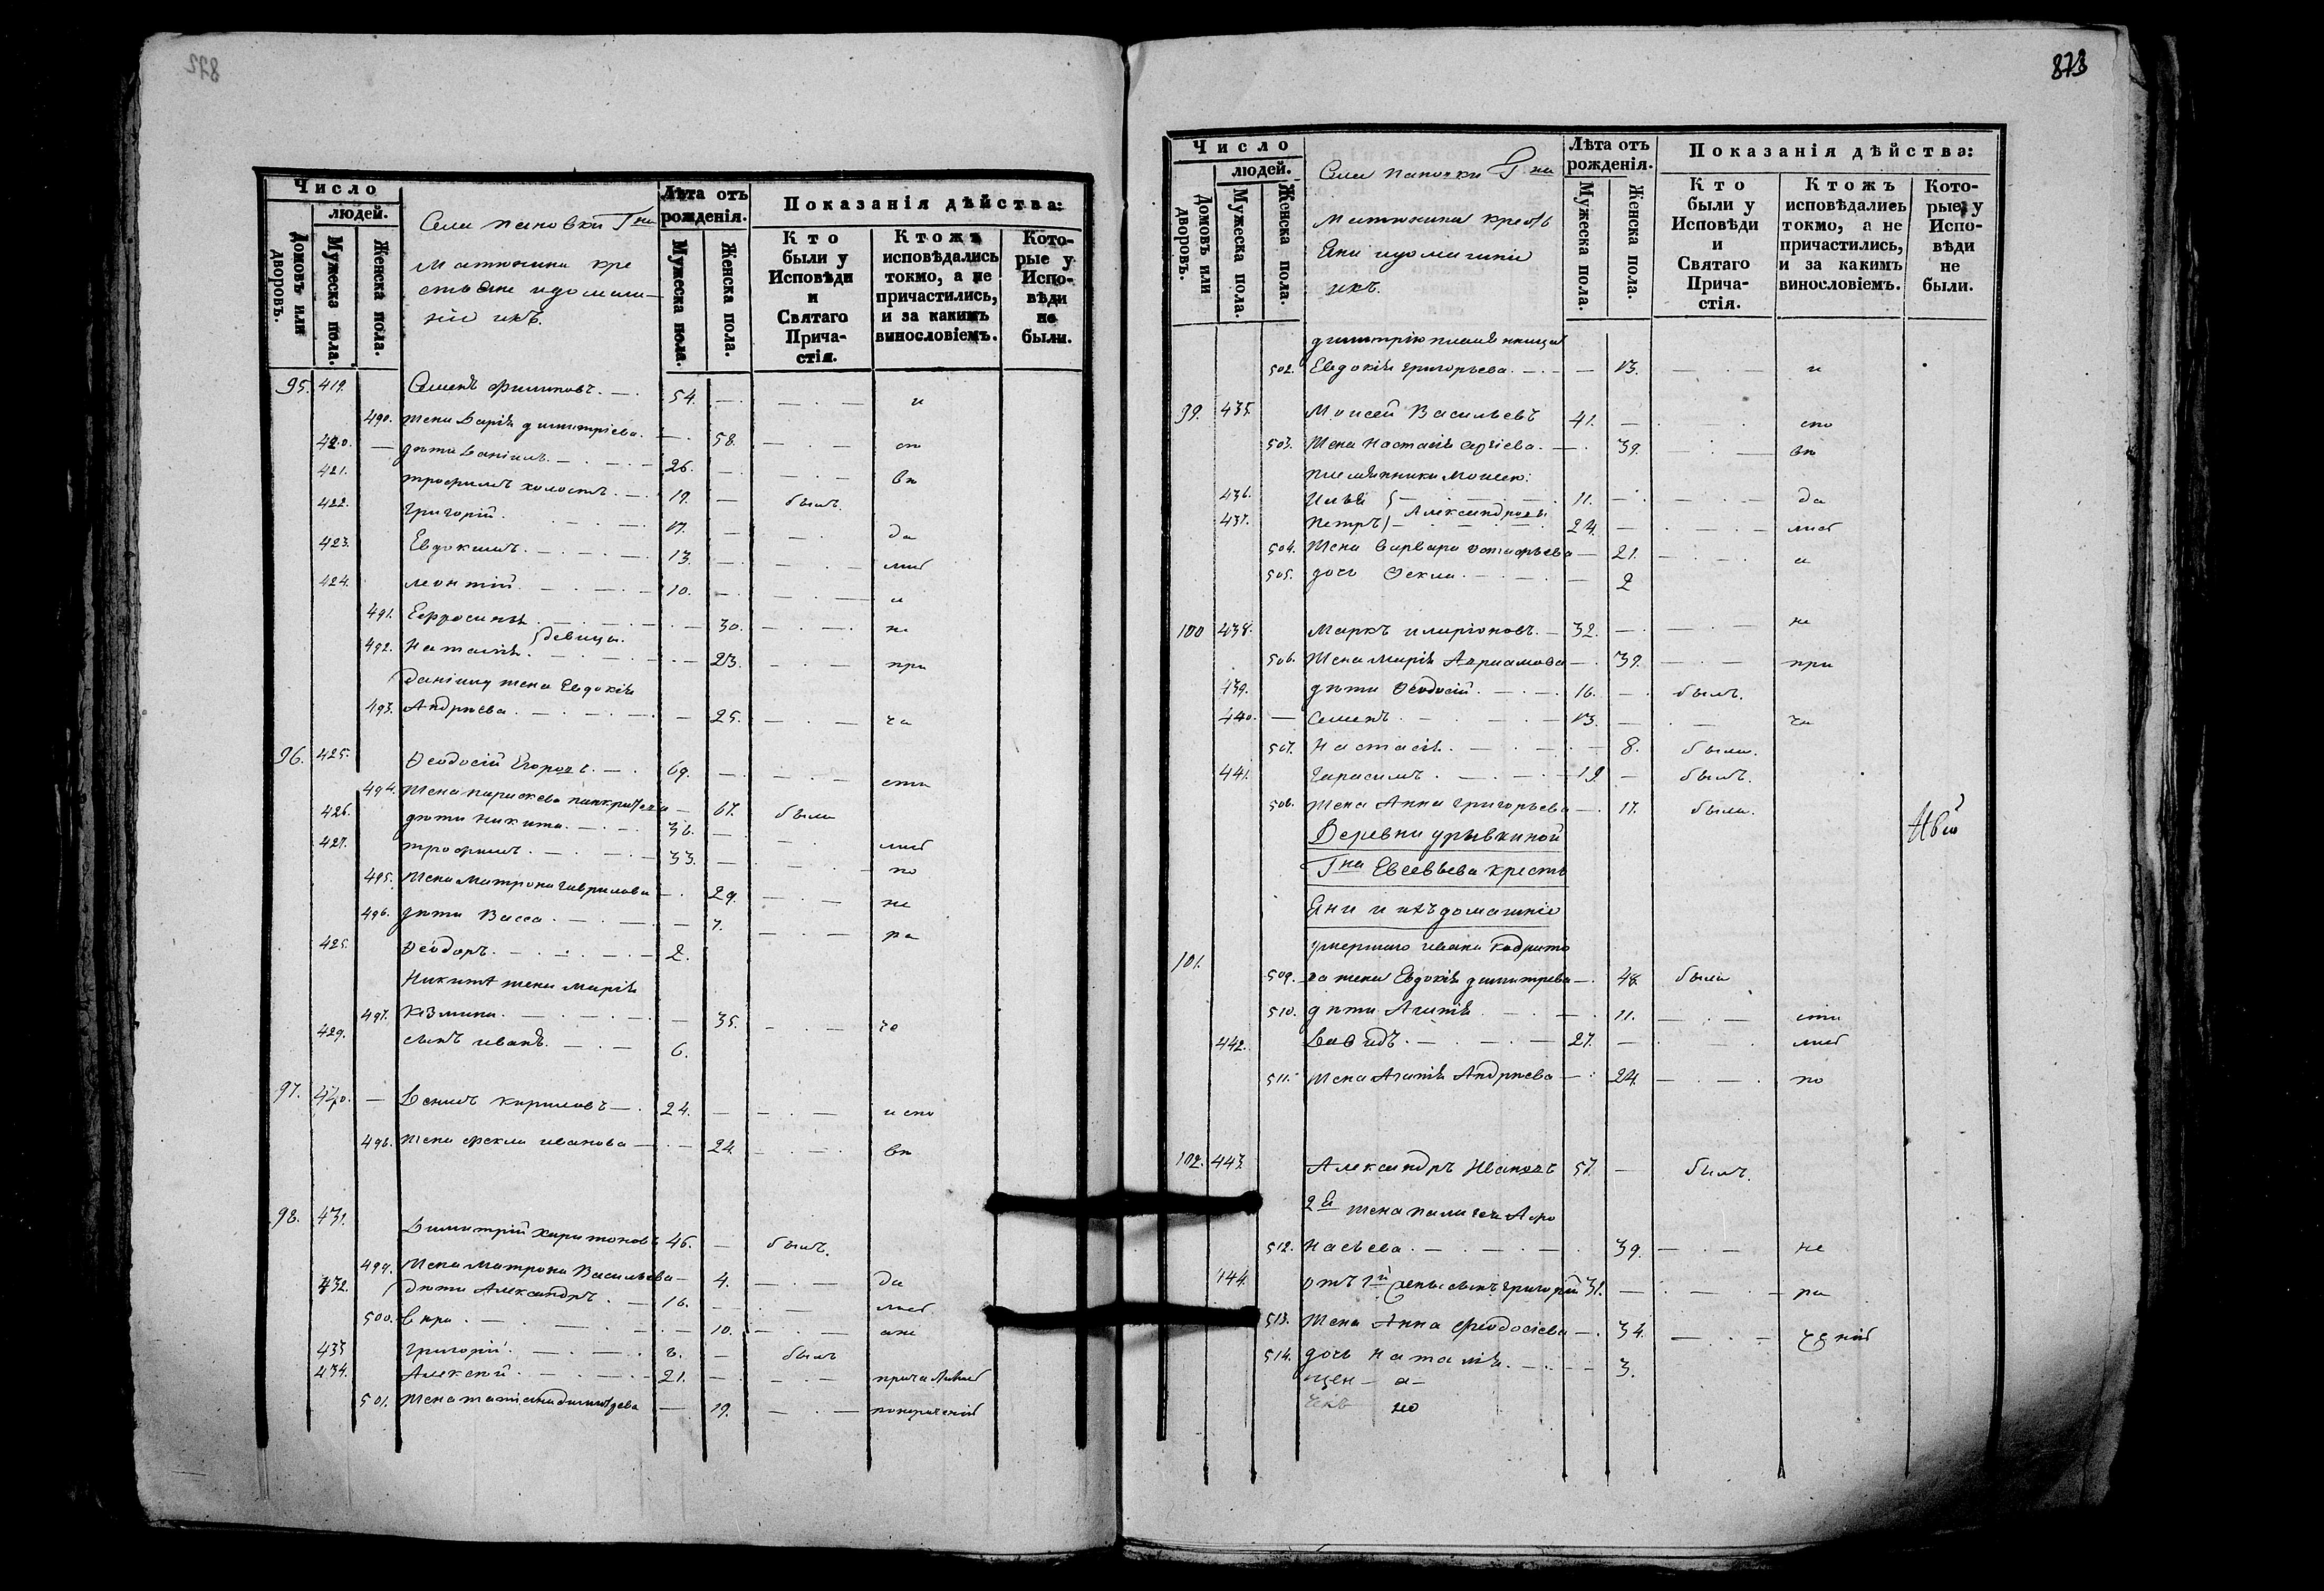 872
Число
людей.
Домовъ или дворовъ.
Мужеска пола.
Женска пола.
Села пановки Гна
Матюнина кре
стьяне идомаш
ніе ихъ.
Лѣта отъ рожденія.
Мужеска пола.
Женска пола.
Показанія дѣйства:
Кто были у Исповѣди и Святаго Причастія.
Ктожъ исповѣдались токмо, а не причастились, и за какимъ винословіемъ.
Которые у Исповѣди не были.
95. 419. Семенъ Филиповъ. 54. и
490. жена Дарія димитріева. 58. сп
420. дѣти Даніилъ. 26. вп
421. трофимъ холостъ. 19. былъ.
422. григорій. 17. да
423. Евдокимъ. 13. лист
424. леонтій. 10. и
491. Ефросинія 30. не
492. Наталія. девицы. 23. при
Даніилу жена Евдокія
493. Андреева. 25. ча
96. 425. Ѳеодосій Егоровъ. 69. сти
494. жена параскева панкратева 67. была
426. дѣти никита. 36. лист
427. трофимъ. 33. по
495. жена Матрона гаврилова 29. не
496. дѣти Васса. 7. ра
425. Ѳеодоръ. 2.
Никитѣ жена Марія
497. Казмина. 35. че
429. сынъ иванъ. 6.
97. 430. Денисъ кириловъ 24. испо
498. жена фекла иванова 24. вп
98. 431. Димитрій харитоновъ 46. былъ.
499. жена Матрона Васильева 4. да
432. дѣти Александръ. 16. лист
500. Вѣра. 10. ане
433 григорій. 8. былъ
434. Алексѣй. 21.
501. жена татіана димитрева 19.
873
Число
людей.
Домовъ или дворовъ.
Мужеска пола.
Женска пола.
Села пановки Гна
Матюнина кресть
Яни идомашніе
ихъ.
Лѣта отъ рожденія.
Мужеска пола.
Женска пола.
Показанія дѣйства:
Кто были у Исповѣди и Святаго Причастія.
Ктожъ исповѣдались токмо, а не причастились, и за какимъ винословіемъ.
Которые у Исповѣди не были.
димитрію племѣнница
502. Евдокія григорьева. 13. и
99. 435. Моисей Васильевъ 41. спо
503. жена Настасія 39. вп
племянники Моисею:
436. Илья 11. да
Александровы
437. Петръ 24. лист
504. жена варвара 21. и
505. дочь Ѳекла. 2
100 438. Маркъ иларіоновъ. 32. не
506. жена Марія Авраамова 39. при
439. дѣти Ѳеодосій. 16. былъ.
440. Семенъ. 13. ча
507. Настасія. 8. была.
441. Гарасимъ. 19 былъ.
508. жена Анна григорьева 17. была.
Деревни урывкиной
Гна Евсевьева кресть
Яни и ихъ домашніе
101. умершаго ивана
509. жена Евдокія димитрева 48. была
510. дѣти Агатія 11. сти
442. Давидъ. 27. лист
511. жена Агатія Андреева 24. по
102. 443. Александръ Ивановъ 57. былъ.
2я жена палагея Афо
512. насьева. 39. не
444. отъ 1й жены сынъ григорій 31. ра
513. жена Анна Феодосіева 34.
514. дочь Наталія. 3.
щен а
но